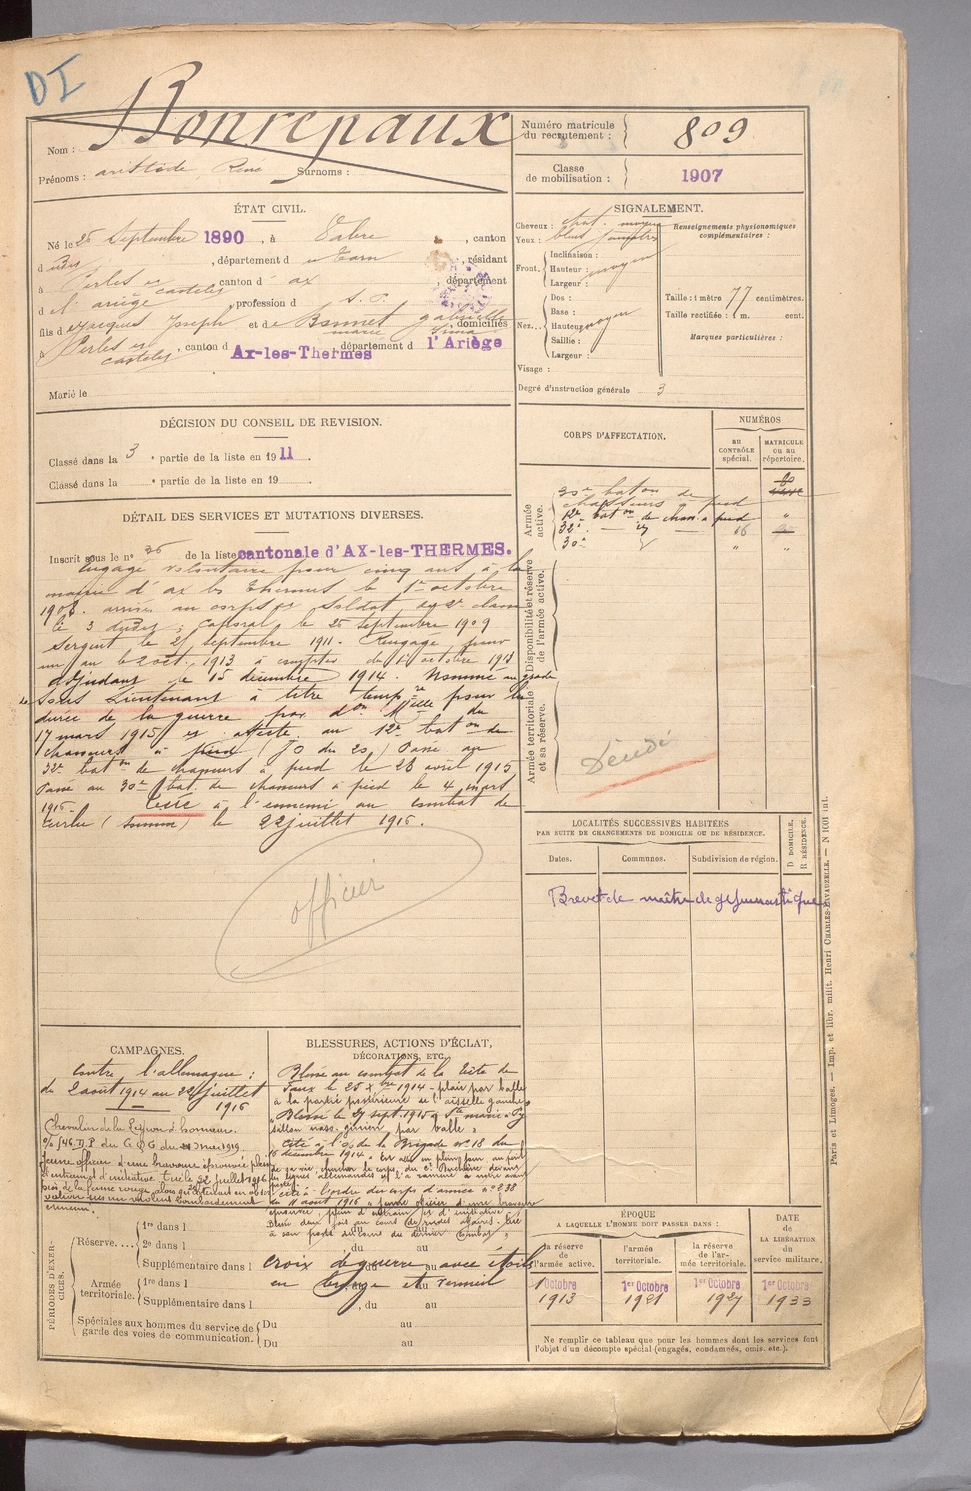 DI
Nom : Bonrepaux
Prénoms : aristide, René Surnoms :
Numéro matricule du recrutement : 809
Classe de mobilisation : 1907
ÉTAT CIVIL.
Né le 25 Septembre 1890, à Vabre, canton
d , département d u Tarn, résidant
à Perles et Castelet, canton d ax, département
d e l'ariège, profession d S. P.
fils d e Jacques Joseph et d e Bonnet gabrielle marie , domiciliés
à Perles et Castelet, canton d Ax-les-Thermes, département d l'Ariège
Marié le
SIGNALEMENT.
Cheveux : chat. moyen
Yeux : bleus
Front. Inclinaison :
Hauteur : moyen
Largeur :
Nez... Dos :
Base :
Hauteur : moyen
Saillie :
Largeur :
Visage :
Renseignements physionomiques complémentaires :
Taille : 1 mètre 77 centimètres.
Taille rectifiée : 1 m. cent.
Marques particulières :
Degré d'instruction générale 3
DÉCISION DU CONSEIL DE REVISION.
Classé dans la 3e partie de la liste en 1911.
Classé dans la e partie de la liste en 19
DÉTAIL DES SERVICES ET MUTATIONS DIVERSES.
Inscrit sous le n° 26 de la liste cantonale d'AX-les-THERMES.
Engagé volontaire pour cinq ans à la
mairie d'ax les Thermes le 1er octobre
1908. arrivé au corps et soldat de 2e classe
le 3 dudit ; Caporal le 25 septembre 1909
Sergent le 25 septembre 1911. Rengagé pour
un an le 2 oct. 1913 à compter du 1er octobre 1913
adjudant le 15 décembre 1914. Nommé au grade
de Sous Lieutenant à titre tempre pour la
durée de la guerre par don Melle du
17 mars 1915 et affecté au 12e baton de
chasseurs à pied (JO du 20) Passé au
32e baton de chasseurs à pied le 23 avril 1915
Passé au 30e bat. de chasseurs à pied le 4 mars
1916. Tué à l'ennemi au combat de
Curlu (Somme) le 22 juillet 1916.
officier
CORPS D'AFFECTATION.
NUMÉROS
au contrôle spécial.
MATRICULE ou au répertoire.
Armée active.
20e baton de
chasseurs à pied
12e baton de chass. à pied "
32e — d° — 16
30e " "
Disponibilité et réserve de l'armée active.
Armée territoriale et sa réserve.
Décédé
LOCALITÉS SUCCESSIVES HABITÉES
PAR SUITE DE CHANGEMENTS DE DOMICILE OU DE RÉSIDENCE.
Dates. Communes. Subdivision de région. D DOMICILE. R RÉSIDENCE.
Brevet de maître de gymnastique
CAMPAGNES.
Contre l'allemagne :
du 2 août 1914 au 22 juillet
1916
Chevalier de la Légion d'honneur.
Jeune officier d'une bravoure éprouvée plein
d'entrain et d'initiative. Tué le 22 juillet 1916
près de la ferme rouge, alors qu'il
violent bombardement
ennemi.
BLESSURES, ACTIONS D'ÉCLAT, DÉCORATIONS, ETC.
Blessé au combat de la tête de
Faux le 25 Xbre 1914 - plaie par balle
à la partie postérieure de l'aisselle gauche
Blessé le 27 sept. 1915 à Ste marie à Py
par balle "
Cité à l'o/ de la Brigade n° 18 du
16 décembre 1914 "
Cité à l'ordre du corps d'armée n° 238
du 11 août 1916 " Jeune officier d'une bravoure
éprouvée, plein d'entrain et d'initiative
Blessé deux fois au cours de rudes affaires. Tué
à son poste au cours du dernier combat "
croix de guerre avec étoile
en bronze et vermeil
PÉRIODES D'EXERCICES.
Réserve.... 1re dans l
2e dans l du au
Supplémentaire dans l
Armée territoriale. 1re dans l
Supplémentaire dans l , du au
Spéciales aux hommes du service de garde des voies de communication. Du au
Du au
ÉPOQUE
A LAQUELLE L'HOMME DOIT PASSER DANS :
la réserve de l'armée active. l'armée territoriale. la réserve de l'armée territoriale.
DATE de LA LIBÉRATION du service militaire.
1 Octobre 1913
1er Octobre 1921
1er Octobre 1927
1er Octobre 1933
Ne remplir ce tableau que pour les hommes dont les services font l'objet d'un décompte spécial (engagés, condamnés, omis, etc.).
Paris et Limoges. — Imp. et libr. milit. Henri CHARLES-LAVAUZELLE. — N 1601 int.